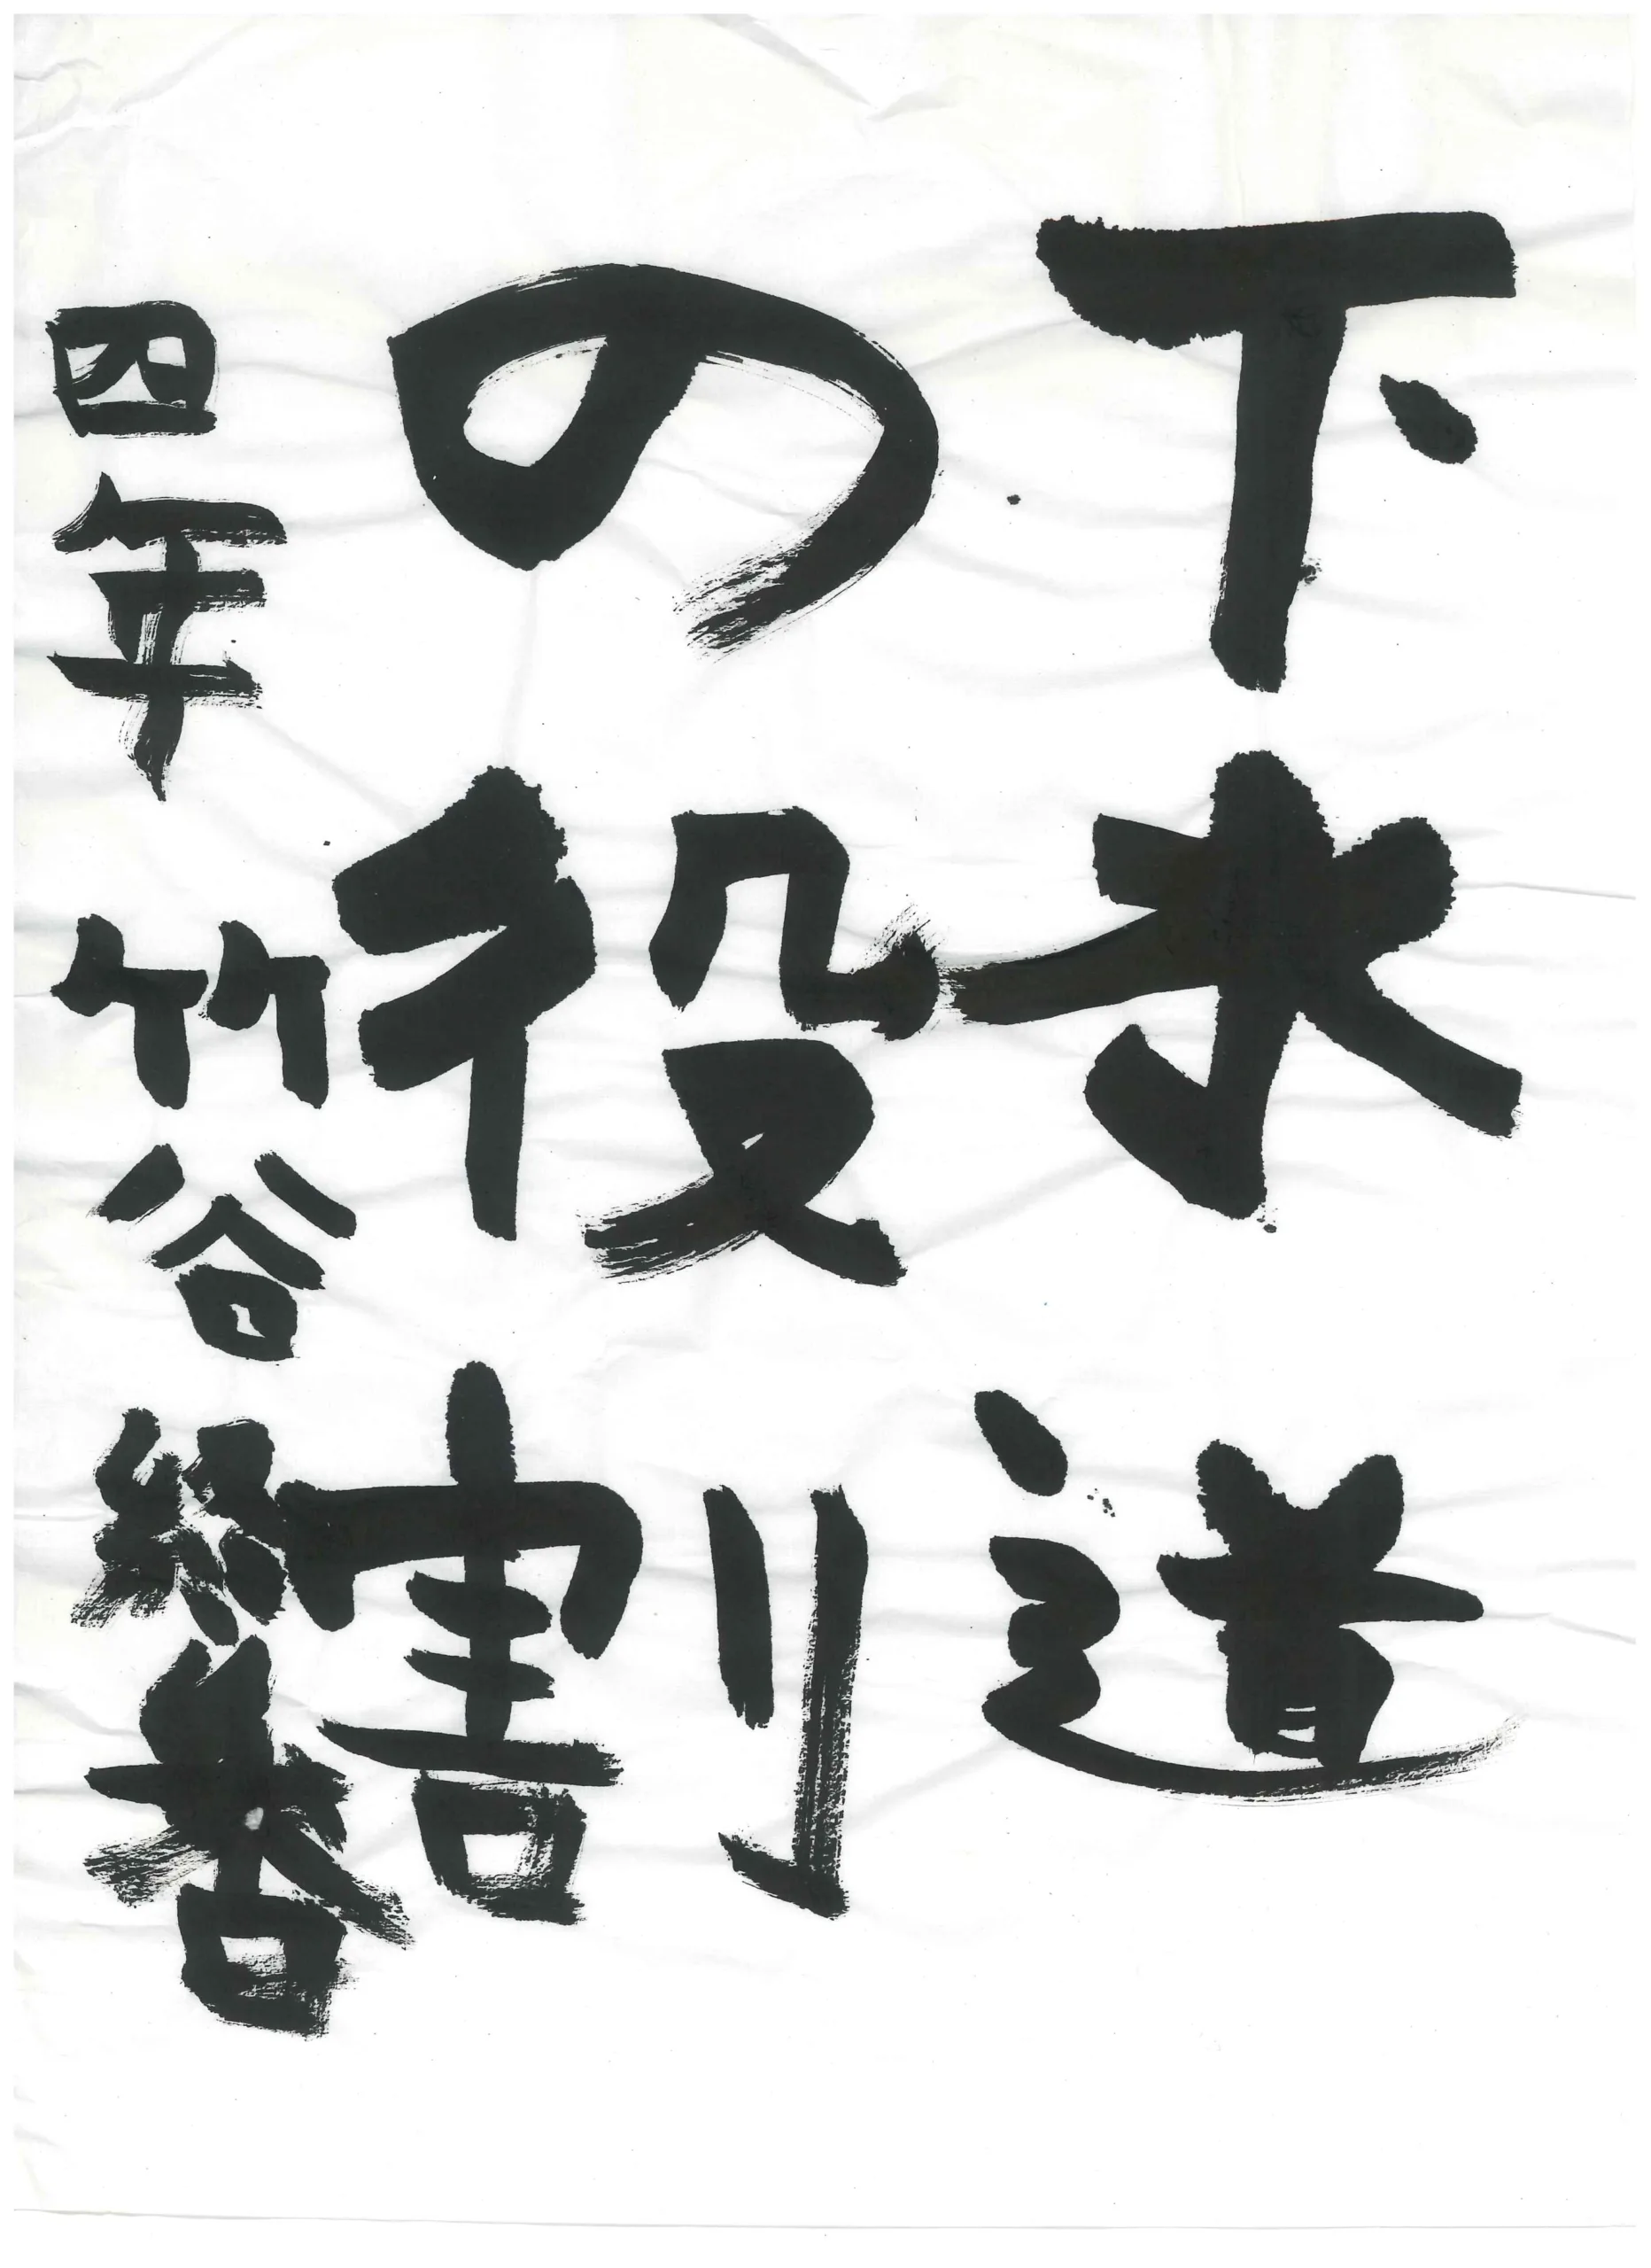 下水道
の役割
四年 竹谷